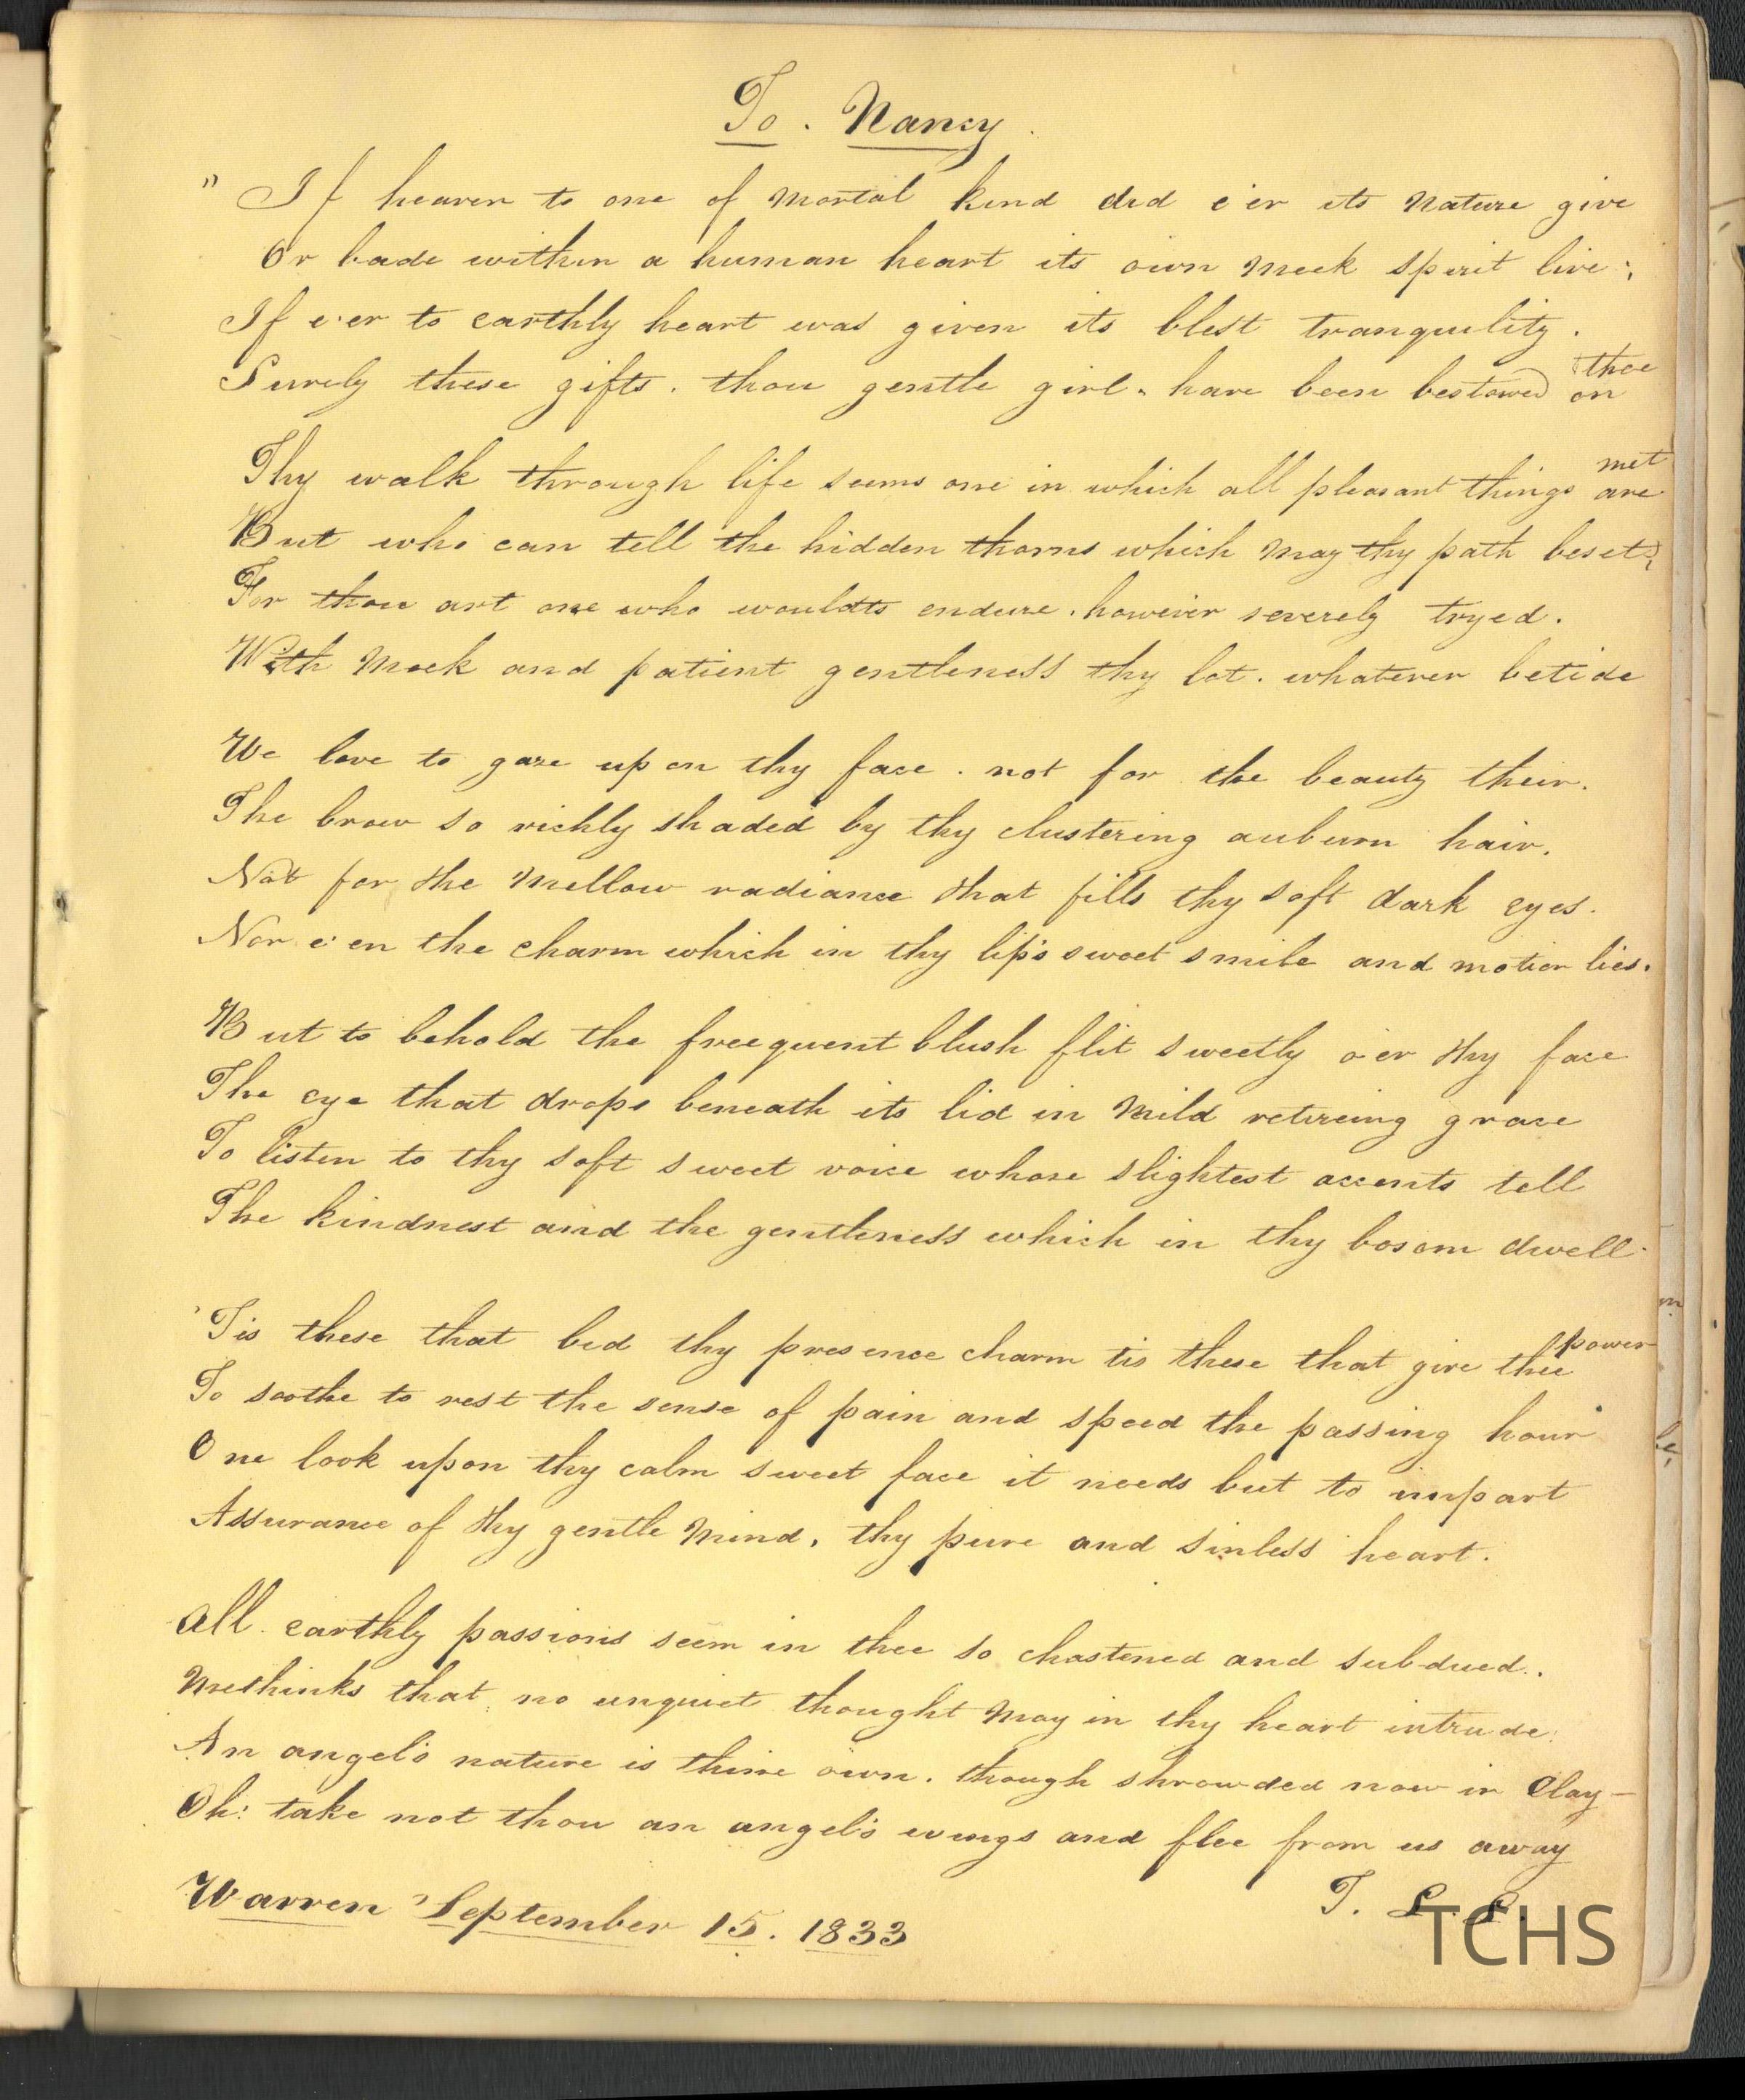 To. Nancy.
" If heaven to one of mortal kind did e'er its nature give
Or bade within a human heart its own meek spirit live;
If e'er to earthly heart was given its blest tranquility.
Surely these gifts. thou gentle girl. have been bestowed on thee
Thy walk through life seems one in which all pleasant things are met
But who can tell the hidden thorns which may thy path beset?
For thou art one who wouldts endure. however severely tryed.
With meek and patient gentleness thy lot. whatever betide
We love to gaze upon thy face. not for the beauty their.
The brow so richly shaded by thy clustering auburn hair.
Not for the mellow radiance that fills thy soft dark eyes.
Nor e'en the charm which in thy lip's sweet smile and motion lies.
But to behold the freequent blush flit sweetly o'er thy face
The eye that drops beneath its lid in mild retireing grace
To listen to thy soft sweet voice whose slightest accents tell
The kindnest and the gentleness which in thy bosom dwell.
'Tis these that bid thy presence charm tis these that give thee power
To soothe to rest the sense of pain and speed the passing hour
One look upon thy calm sweet face it needs but to impart
Assurance of thy gentle mind, thy pure and sinless heart.
All earthly passions seem in thee so chastened and subdued..
Methinks that no unquiet thought may in thy heart intrude:
An angel's nature is thine own. though shrowded now in Clay—
Oh! take not thou an angel's wings and flee from us away
T. L.
Warren September 15. 1833
TCHS